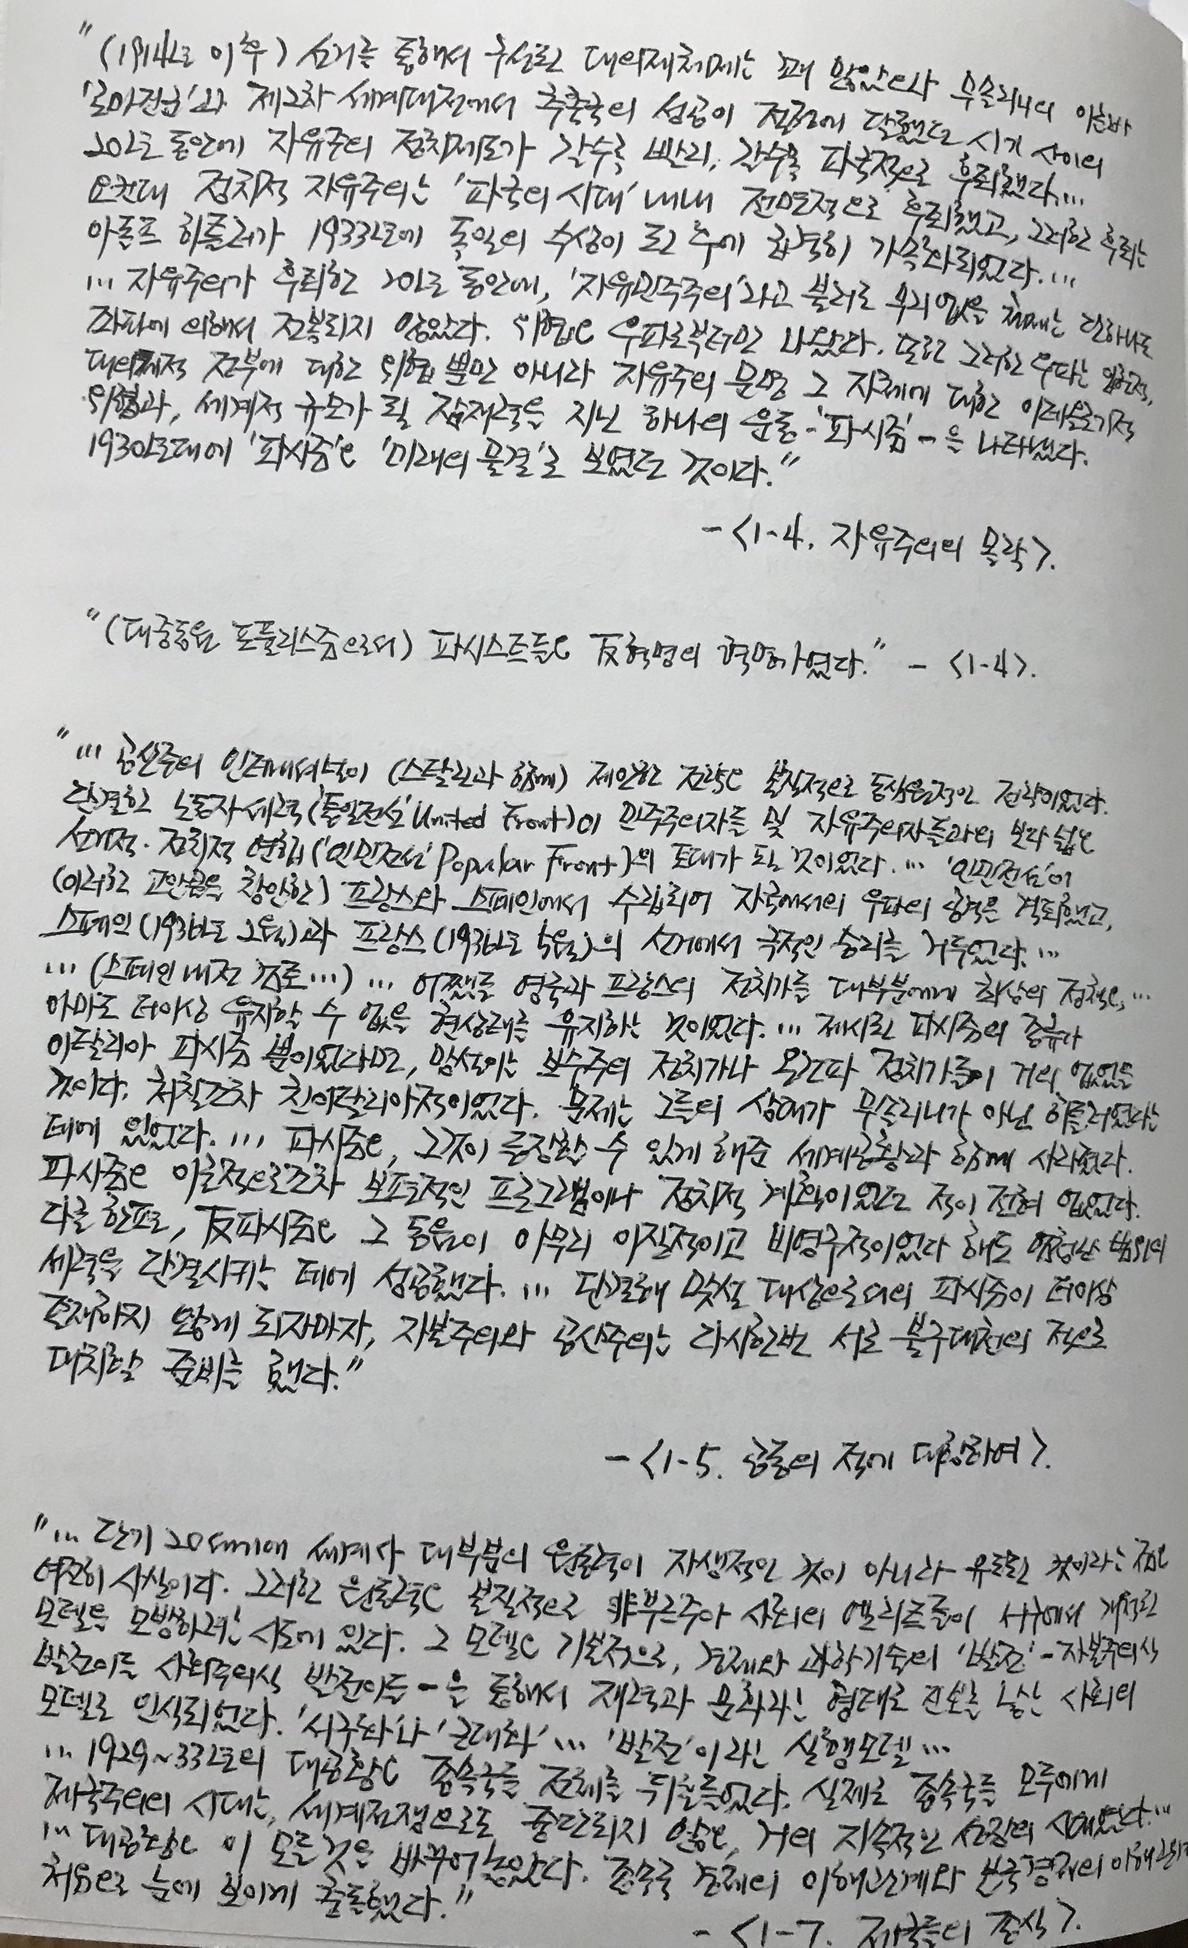 "(1914년 이후) 선거를 통해서 구성된 대의제체제는 꽤 많았으나 무솔리니의 이른바
'로마진군'과 제2차 세계대전에서 추축국의 성공이 절정에 달했던 시기 사이의
20년 동안에 자유주의 정치제도가 갈수록 빨리, 갈수록 파국적으로 후퇴했다....
요컨대 정치적 자유주의는 '파국의 시대' 내내 전면적으로 후퇴했고, 그러한 후퇴는
아돌프 히틀러가 1933년에 독일의 수상이 된 후에 급격히 가속화되었다. ...
... 자유주의가 후퇴한 20년 동안에, '자유민주주의'라고 불러도 무리없을 체제는 단하나도
좌파에 의해서 전복되지 않았다. 위협은 우파로부터만 나왔다. 또한 그러한 우파는 입헌적,
대의제적 정부에 대한 위협 뿐만 아니라 자유주의 문명 그 자체에 대한 이데올로기적
위협과, 세계적 규모가 될 잠재력을 지닌 하나의 운동-'파시즘'-을 나타냈다.
1930년대에 '파시즘'은 '미래의 물결'로 보였던 것이다."
- <1-4. 자유주의의 몰락>.
"(대중동원 포퓰리즘으로서) 파시스트들은 反혁명의 혁명가였다." - <1-4>.
"... 공산주의 인터내셔널이 (스탈린과 함께) 제안한 전략은 본질적으로 동심원적인 전략이었다.
단결한 노동자세력('통일전선' United Front)이 민주주의자들 및 자유주의자들과의 보다 넓은
선거적·정치적 연합('인민전선' Popular Front)의 토대가 될 것이었다. ... '인민전선'이
(이러한 고안물을 창안한) 프랑스와 스페인에서 수립되어 자국에서의 우파의 공격을 격퇴했고,
스페인(1936년 2월)과 프랑스(1936년 5월)의 선거에서 극적인 승리를 거두었다. ...
... (스페인 내전 ...) ... 어쨌든 영국과 프랑스의 정치가들 대부분에게 최상의 정책은, ...
아마도 더이상 유지할 수 없을 현상태를 유지하는 것이었다. ... 제시된 파시즘의 종류가
이탈리아 파시즘 뿐이었다면, 망설이는 보수주의 정치가나 온건파 정치가들이 거의 없었을
것이다. 처칠조차 친이탈리아적이었다. 문제는 그들의 상대가 무솔리니가 아닌 히틀러였다는
데에 있었다. ... 파시즘은, 그것이 등장할 수 있게 해준 세계공황과 함께 사라졌다.
파시즘은 이론적으로조차 보편적인 프로그램이나 정치적 계획이었던 적이 전혀 없었다.
다른 한편, 反파시즘은 그 동원이 아무리 이질적이고 비영구적이었다 해도 엄청난 범위의
세력을 단결시키는 데에 성공했다. ... 단결해 맞설 대상으로서의 파시즘이 더이상
존재하지 않게 되자마자, 자본주의와 공산주의는 다시한번 서로 불구대천의 적으로
대치할 준비를 했다."
- <1-5. 공동의 적에 대항하여>.
"... 단기 20세기에 세계사 대부분의 원동력이 자생적인 것이 아니라 유도된 것이라는 점은
여전히 사실이다. 그러한 원동력은 본질적으로 非부르주아 사회의 엘리트들이 서구에서 개척된
모델을 모방하려는 시도에 있다. 그 모델은 기본적으로, 경제와 과학기술의 '발전'-자본주의식
발전이든 사회주의식 발전이든-을 통해서 재력과 문화라는 형태로 진보를 낳는 사회의
모델로 인식되었다. '서구화'나 '근대화' ... '발전'이라는 실행모델 ...
... 1929~33년의 대공황은 종속국들 전체를 뒤흔들었다. 실제로 종속국들 모두에게
제국주의의 시대는, 세계전쟁으로도 중단되지 않은, 거의 지속적인 성장의 시대였다. ...
... 대공황은 이 모든 것을 바꾸어놓았다. 종속국 경제의 이해관계와 본국경제의 이해관계가
처음으로 눈에 보이게 충돌했다."
- <1-7. 제국들의 종식>.